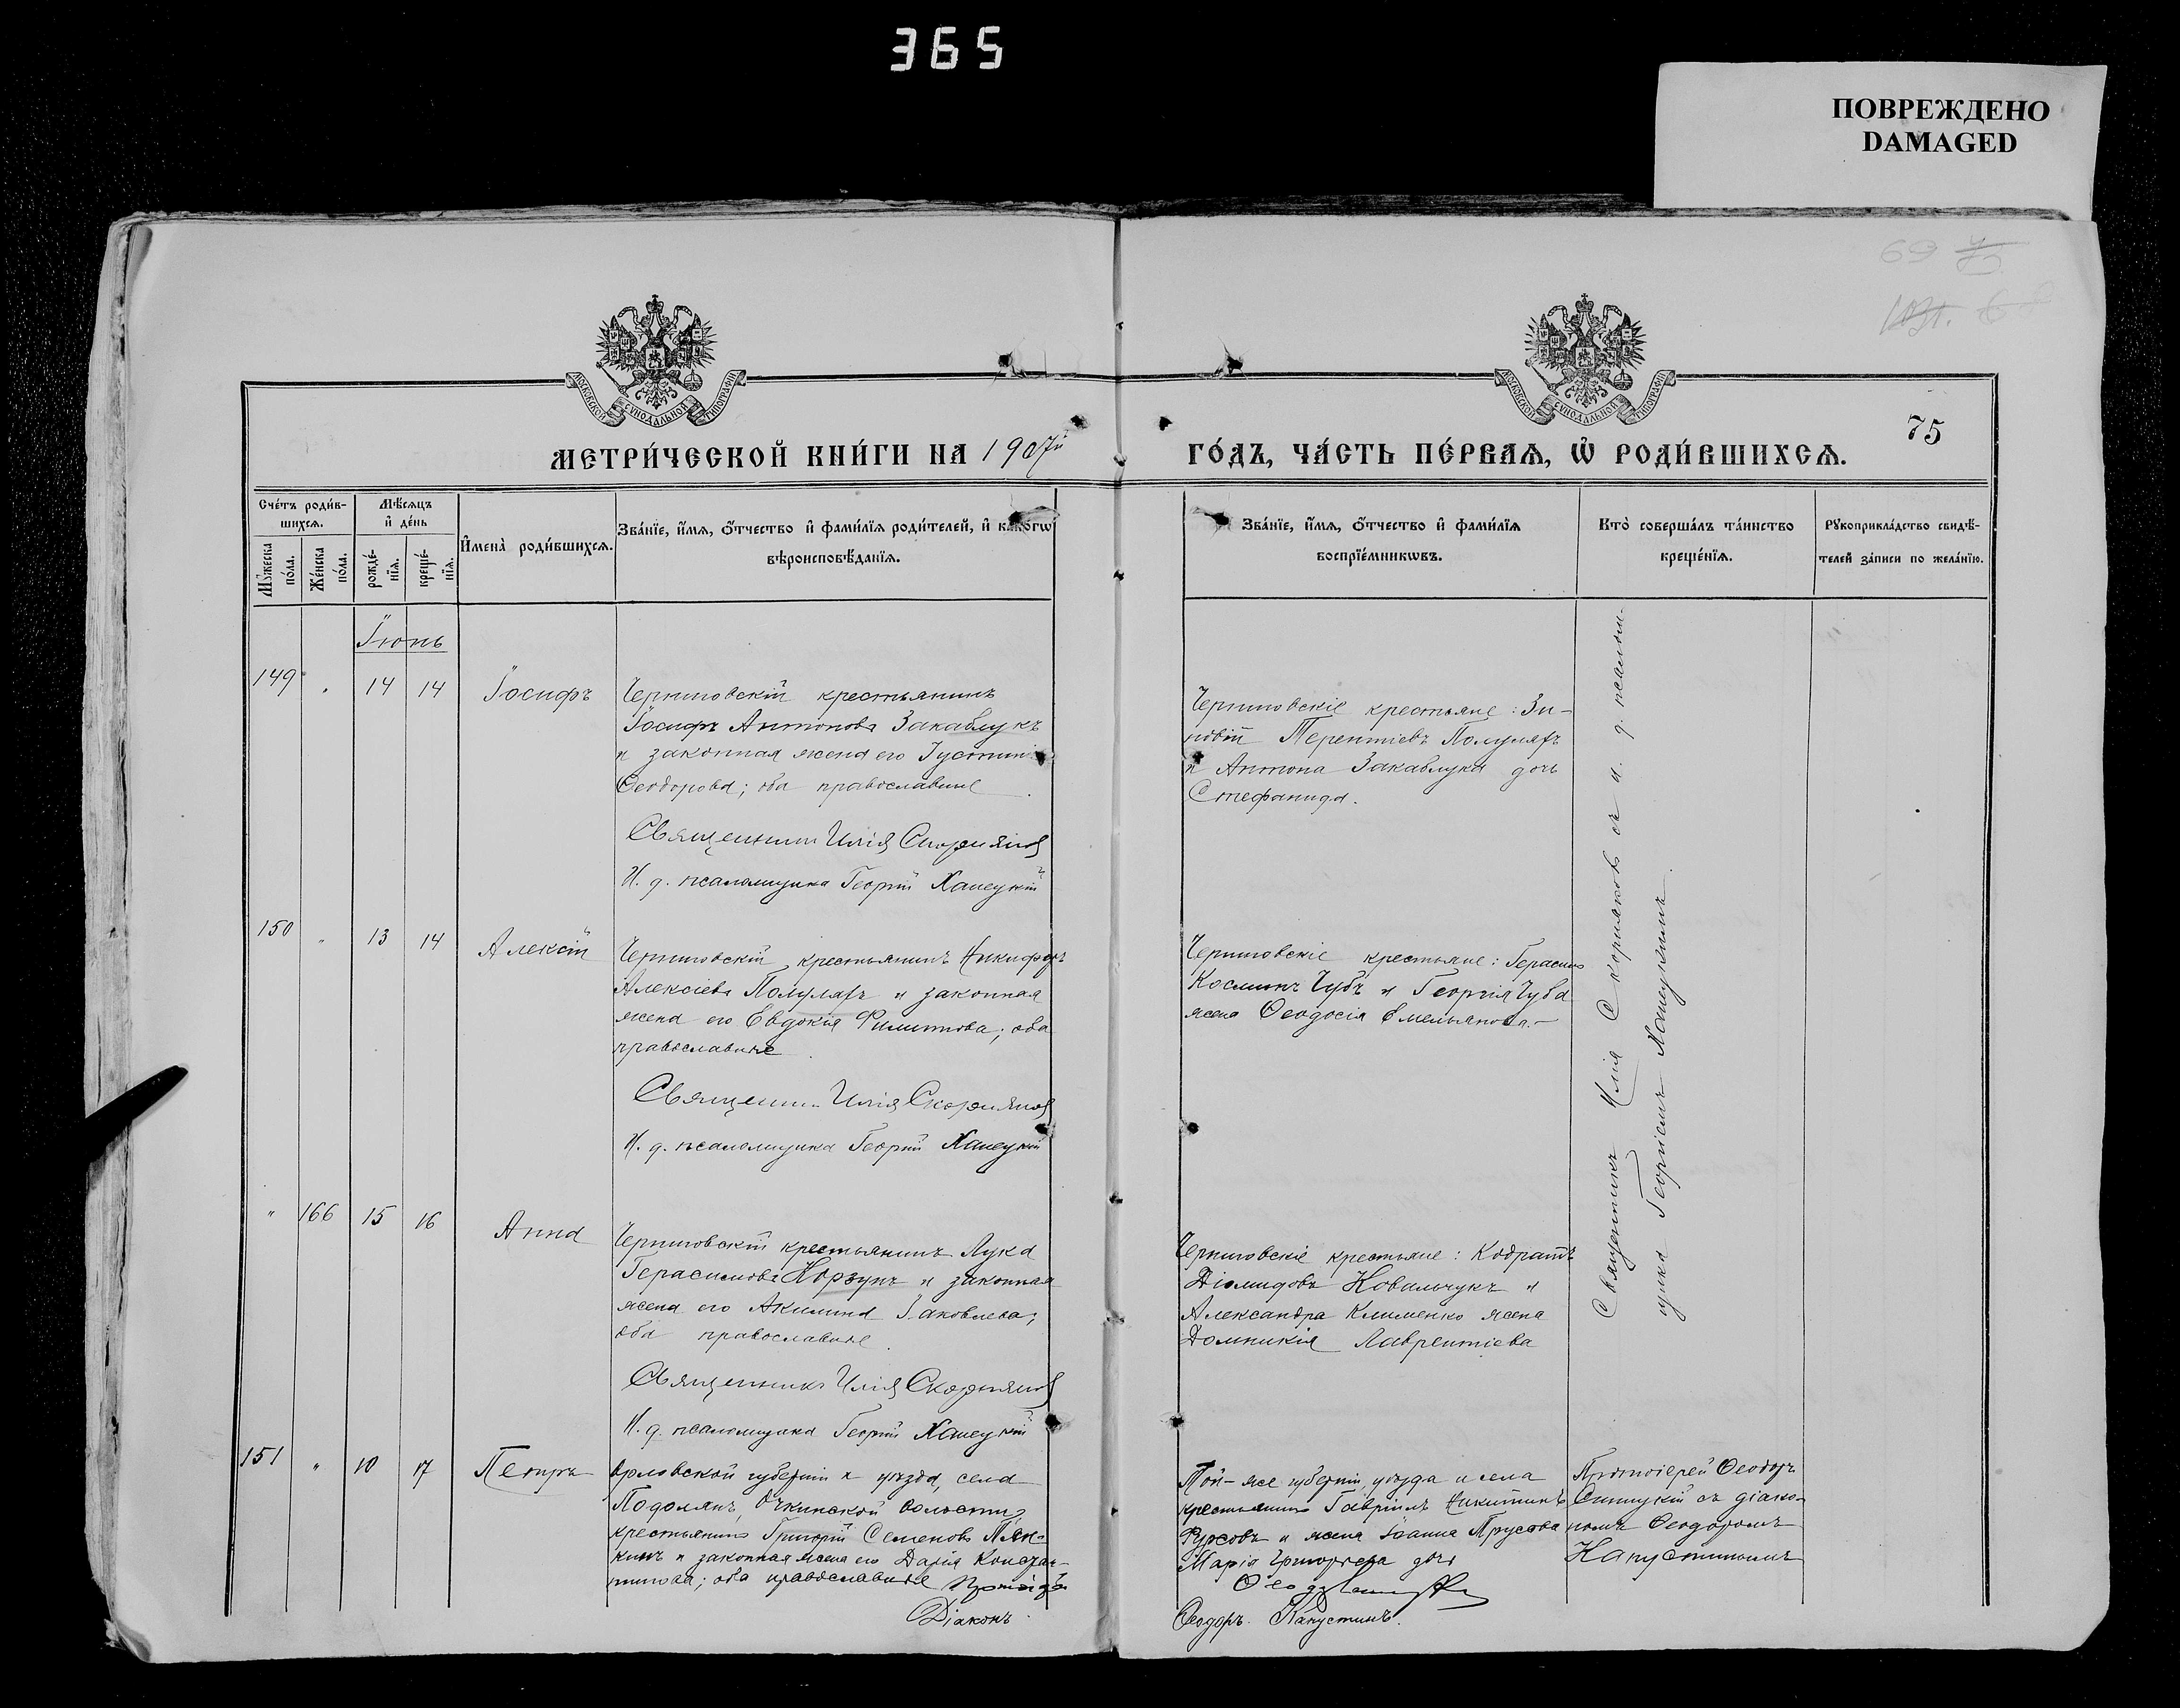 365
ПОВРЕЖДЕНО
DAMAGED
69
МОСКОВСКОЙ СѴНОДАЛЬНОЙ ТИПОГРАФІИ
МОСКОВСКОЙ СѴНОДАЛЬНОЙ ТИПОГРАФІИ
МЕТРИ́ЧЕСКОЙ КНИ́ГИ НА 1907й
ГО́ДЪ, ЧА́СТЬ ПЕ́РВАѦ, Ѡ҆ РОДИ́ВШИХСѦ.
75
Сче́тъ роди́в-
шихсѧ.
Мѣ́сѧцъ
и҆ де́нь
Мꙋ́жеска по́ла.
Же́нска по́ла.
рожде́-
нїѧ.
креще́-
нїѧ.
И҆мена̀ роди́вшихсѧ.
Зва́нїе, и҆́мѧ, ѻ҆́тчество и҆ фами́лїѧ роди́телей, и҆ како́гѡ
вѣроисповѣ́данїѧ.
Зва́нїе, и҆́мѧ, ѻ҆́тчество и҆ фами́лїѧ
воспрїе́мникѡвъ.
Кто̀ соверша́лъ та́инство
креще́нїѧ.
Рꙋкоприкла́дство свидѣ́-
телей за́писи по жела́нїю.
Іюнь
149 " 14 14 Іосифъ
Черниговскій крестьянинъ
Іосифъ Антоновъ Закаблукъ
и законная жена его Іустинія
Ѳеодорова; оба православные.
Священникъ Илія Скорняковъ
И. д. псаломщика Георгій Ханецкій
Черниговскіе крестьяне: Зи-
новій Терентіевъ Полуляхъ
и Антона Закаблука дочь
Стефанида.
Священникъ Илія Скорняковъ съ и. д. псалом-
щика Георгіемъ Ханецкимъ.
150 " 13 14 Алексій
Черниговскій крестьянинъ Никифоръ
Алексіевъ Полуляхъ и законная
жена его Евдокія Филиппова; оба
православные.
Священник Илія Скорняковъ
И. д. псаломщика Георгій Ханецкій
Черниговскіе крестьяне: Герасимъ
Косминъ Чубъ и Георгія Чуба
жена Ѳеодосія Емельянова.—
" 166 15 16 Анна
Черниговскій крестьянинъ Лука
Герасимовъ Корзунъ и законная
жена его Акилина Іаковлева;
оба православные.
Священникъ Илія Скорняковъ
И. д. псаломщика Георгій Ханецкій
Черниговскіе крестьяне: Кодратъ
Діомидовъ Ковальчукъ и
Александра Клименко жена
Домникія Лаврентіева
151 " 10 17 Петръ
Орловской губерніи и уѣзда, села
Подолянъ, Очкинской волости,
крестьянинъ Григорій Семеновъ
и законная жена его Дарія Констан-
тинова; оба православные Протоіерей
Діаконъ
Той-же губерніи, уѣзда и села
крестьянинъ Гавріилъ Никитинъ
Фурсовъ и жена Іоанна Трусова
Марія Григорьева дочь
Ѳеодоръ Капустинъ.
Протоіерей Ѳеодоръ
Синицкій съ діако-
номъ Ѳеодоромъ
Капустинымъ